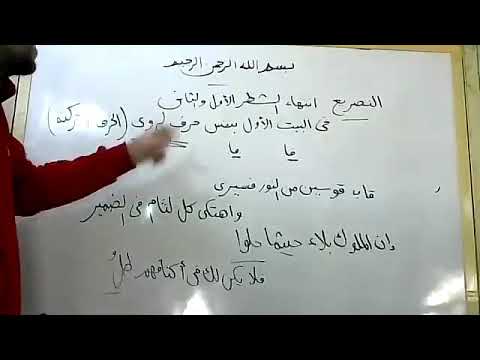 بسم الله الرحمن الرحيم
التصريع انتهاء الشطر الأول والثاني
فى البيت الأول بنفس حرف الروى (الحرف + حركته)
ما ما
قاب قوسين من النور فسيرى
واهتكى كل لثام فى الضمير
وإن الملوك بلاء حيثما حلوا
فلا يكن لك فى أكنافهم ظل